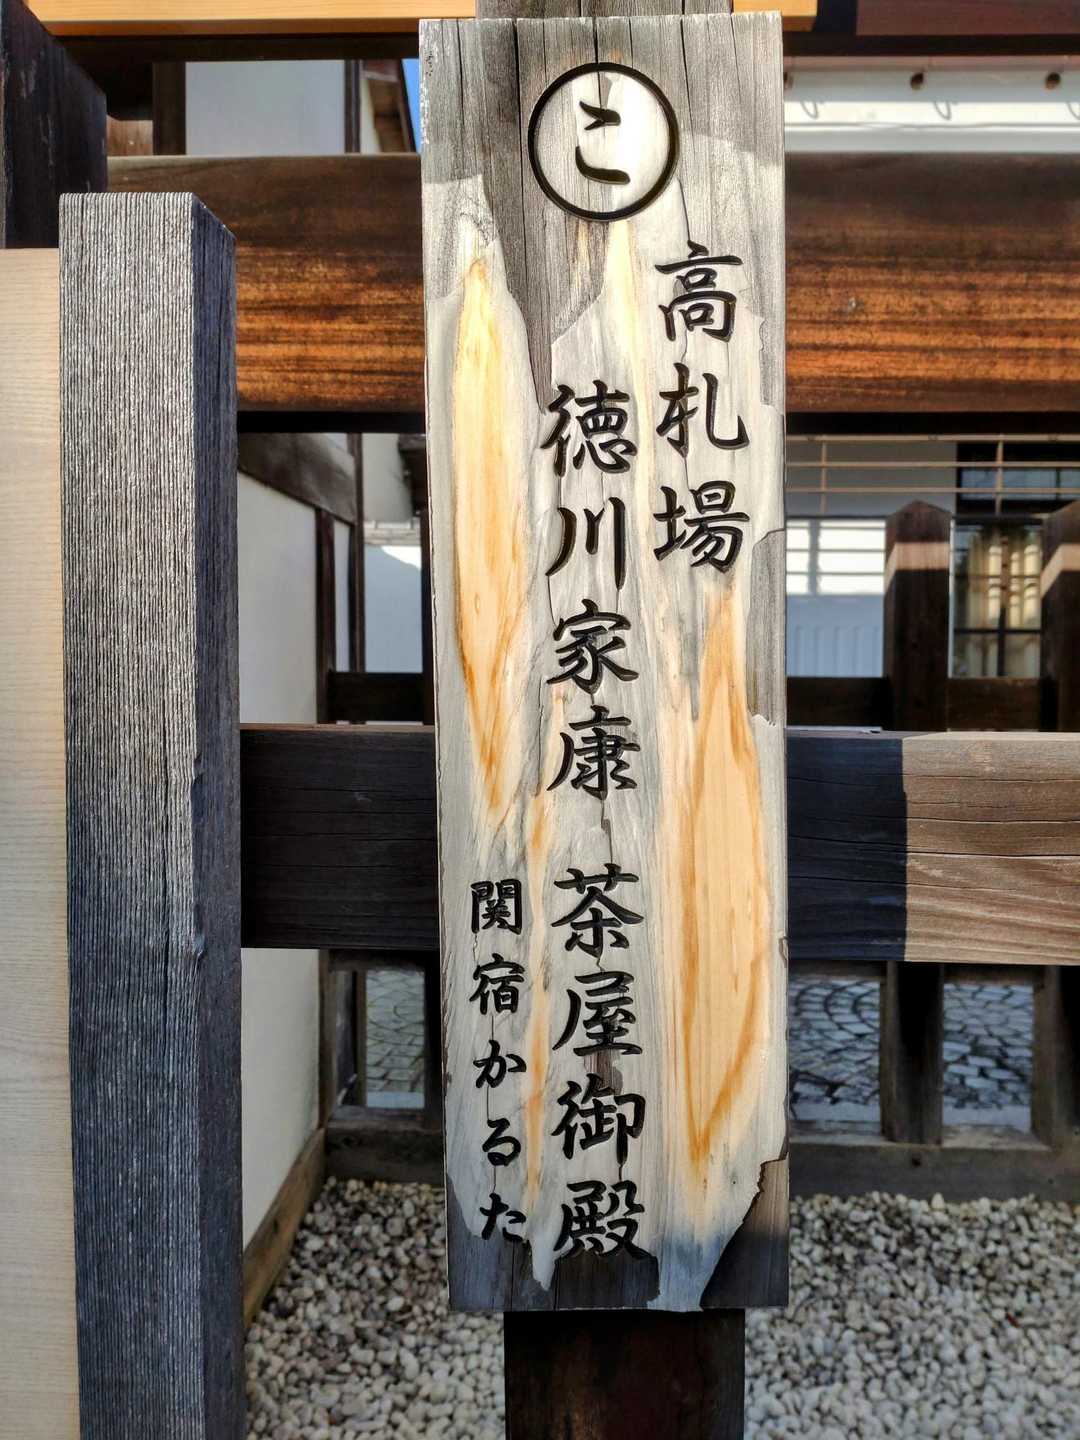 こ
高札場
徳川家康 茶屋御殿
関宿かるた